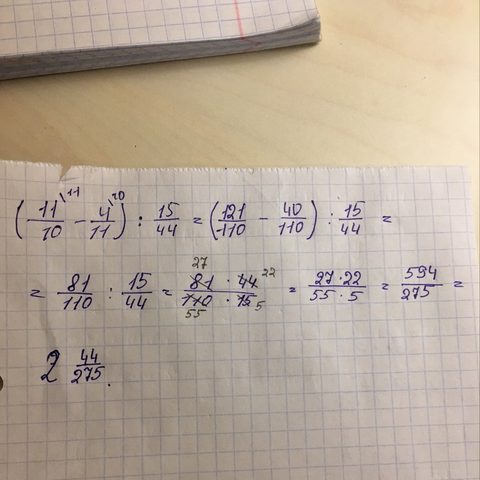 (11/10 \11 - 4/11 \10) : 15/44 = (121/110 - 40/110) : 15/44 =
= 81/110 : 15/44 = 27 81 · 44 22 / 55 110 · 15 5 = 27 · 22 / 55 · 5 = 594/275 =
2 44/275.